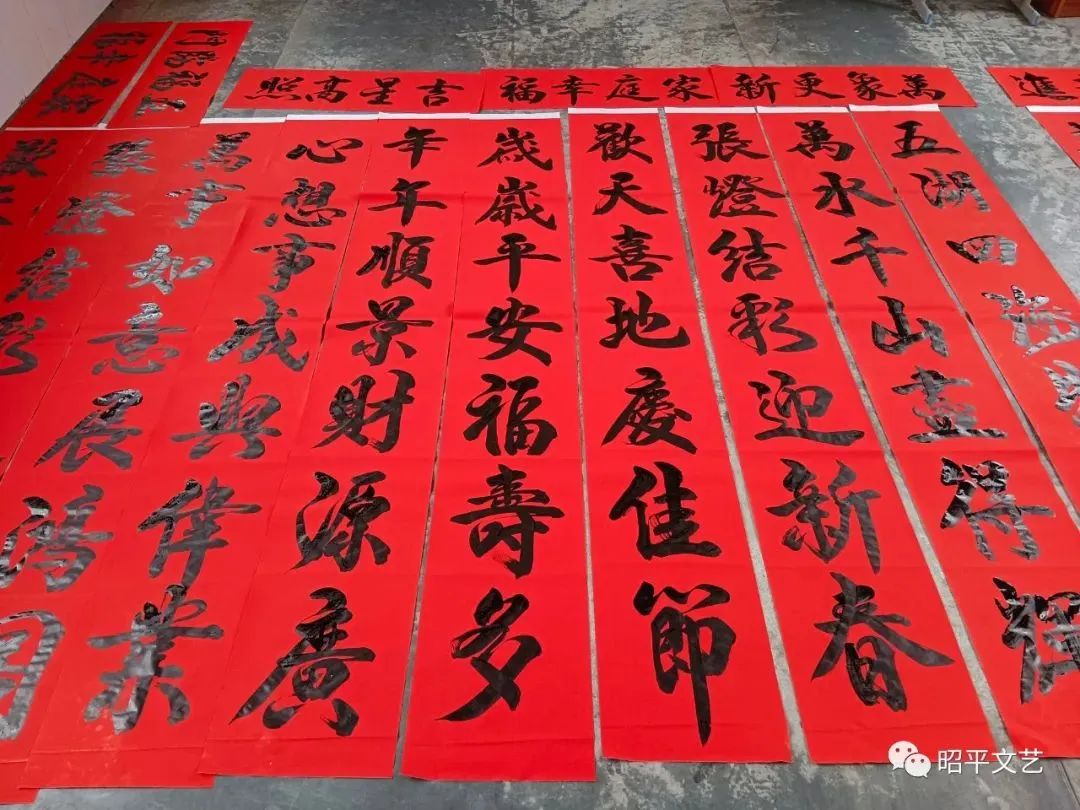 五福臨門
家庭幸福
萬象更新
家庭幸福
吉星高照
進
五湖四海
萬水千山盡得輝
張燈結彩迎新春
歡天喜地慶佳節
歲歲平安福壽多
年年順景財源廣
心想事成興偉業
萬事如意展鴻圖
張燈結彩
歡天
昭平文艺